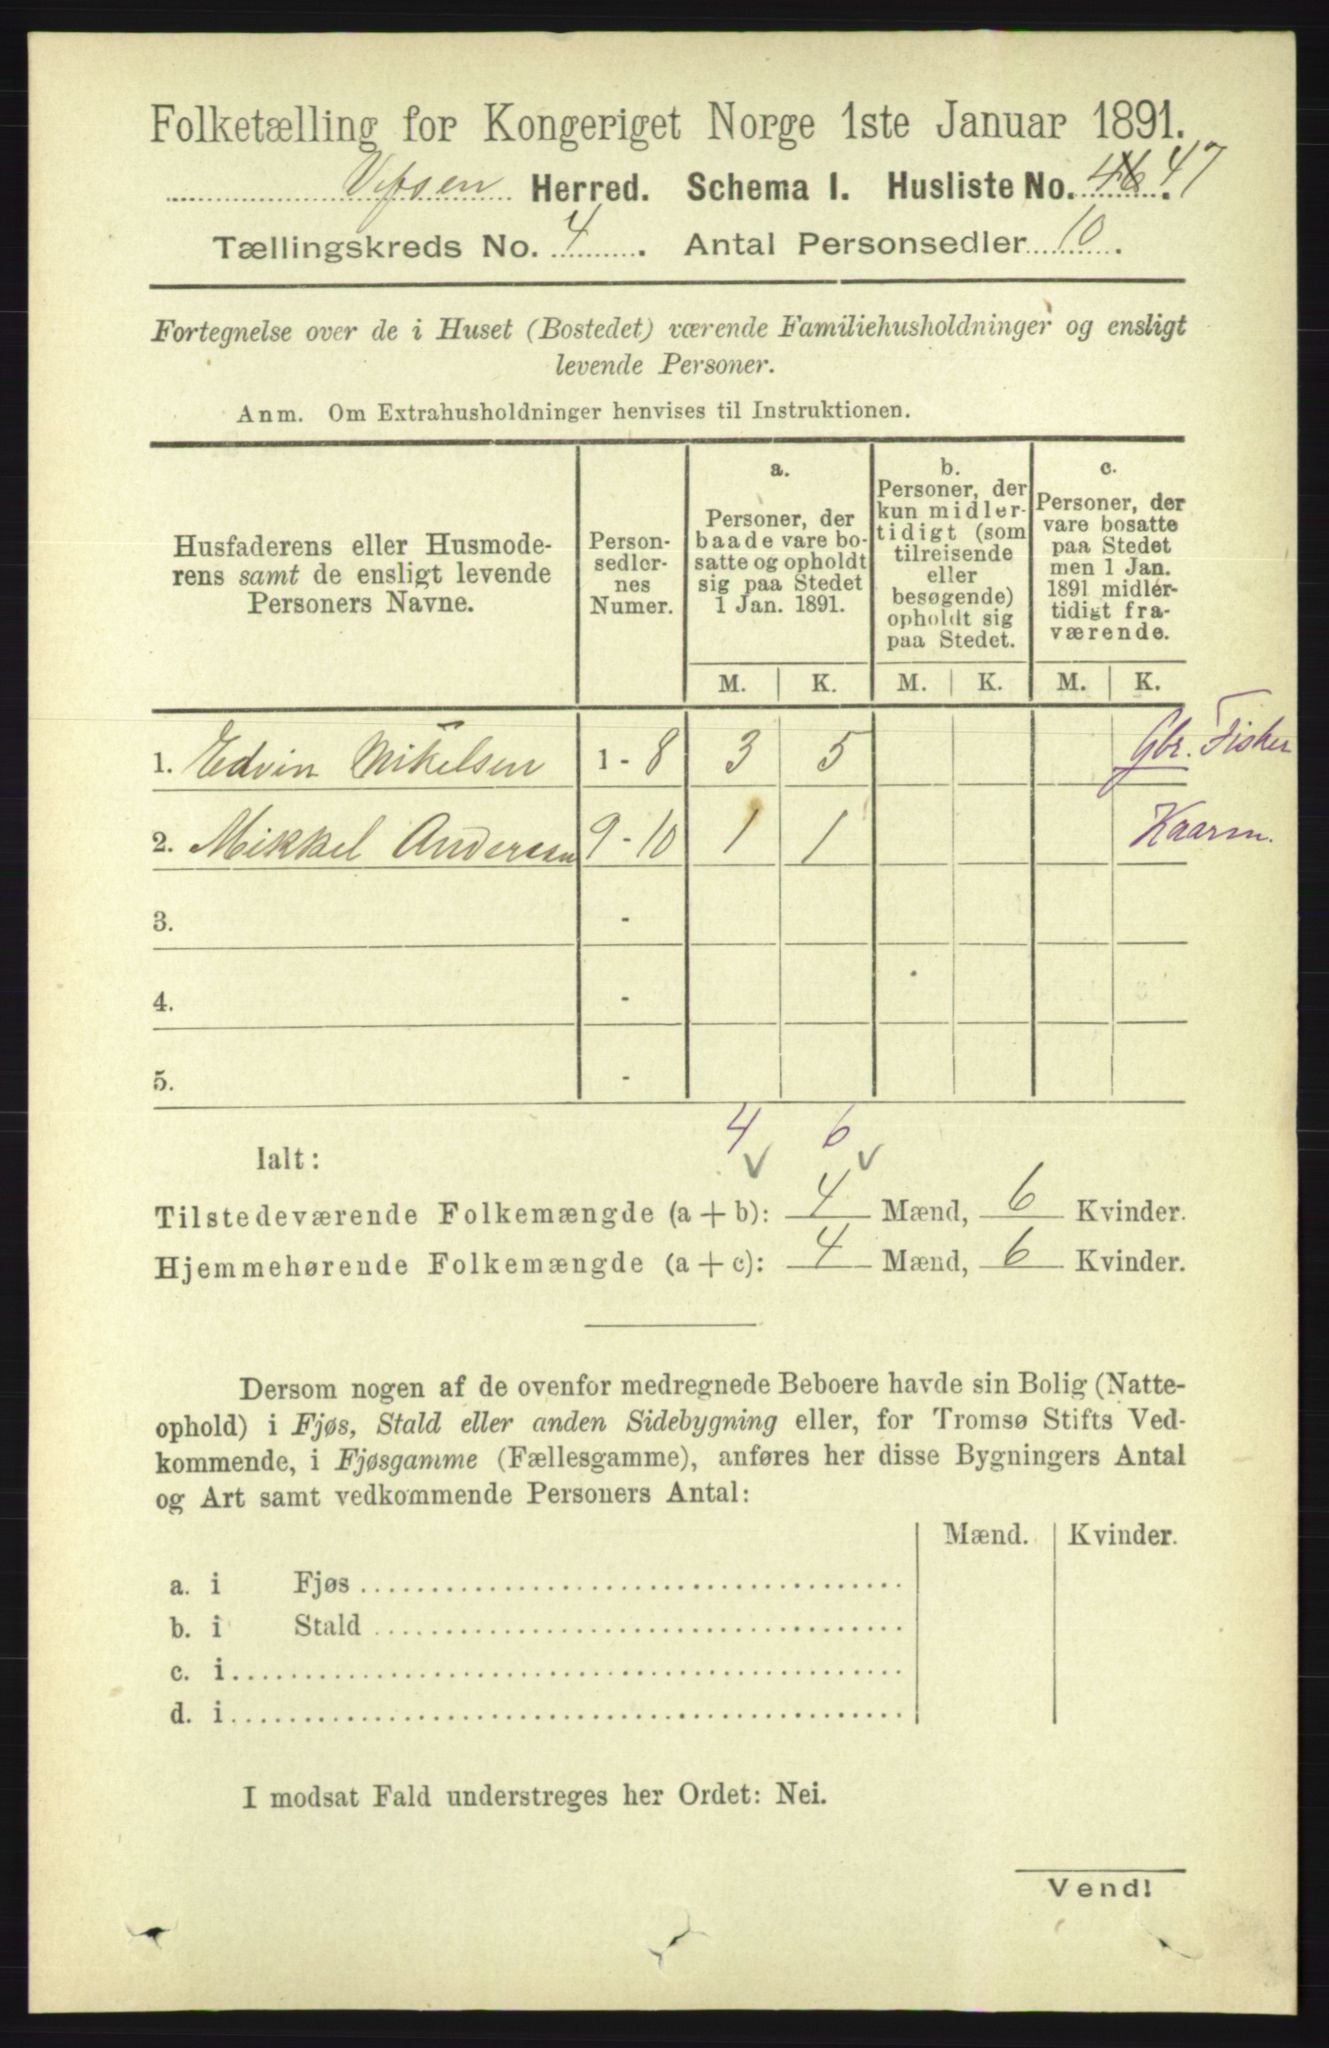 Folketælling for Kongeriget Norge 1ste Januar 1891.
Vefsen Herred. Schema I. Husliste No. 46. 47
Tællingskreds No. 4. Antal Personsedler 10.
Fortegnelse over de i Huset (Bostedet) værende Familiehusholdninger og ensligt
levende Personer.
Anm. Om Extrahusholdninger henvises til Instruktionen.
Husfaderens eller Husmode-
rens samt de ensligt levende
Personers Navne.
Person-
sedler-
nes
Numer.
a.
Personer, der
baade vare bo-
satte og opholdt
sig paa Stedet
1 Jan. 1891.
b.
Personer, der
kun midler-
tidigt (som
tilreisende
eller
besøgende)
opholdt sig
paa Stedet.
c.
Personer, der
vare bosatte
paa Stedet
men 1 Jan.
1891 midler-
tidigt fra-
værende.
M. K. M. K. M. K.
1. Edvin Mikelsen 1 - 8 3 5 Gbr. Fisker
2. Mikkel Andersen 9 - 10 1 1 Kaarm.
3. -
4. -
5. -
4 6
Ialt:
Tilstedeværende Folkemængde (a + b): 4 Mænd, 6 Kvinder.
Hjemmehørende Folkemængde (a + c): 4 Mænd, 6 Kvinder.
Dersom nogen af de ovenfor medregnede Beboere havde sin Bolig (Natte-
ophold) i Fjøs, Stald eller anden Sidebygning eller, for Tromsø Stifts Ved-
kommende, i Fjøsgamme (Fællesgamme), anføres her disse Bygningers Antal
og Art samt vedkommende Personers Antal:
Mænd. Kvinder.
a. i Fjøs
b. i Stald
c. i
d. i
I modsat Fald understreges her Ordet: Nei.
Vend!